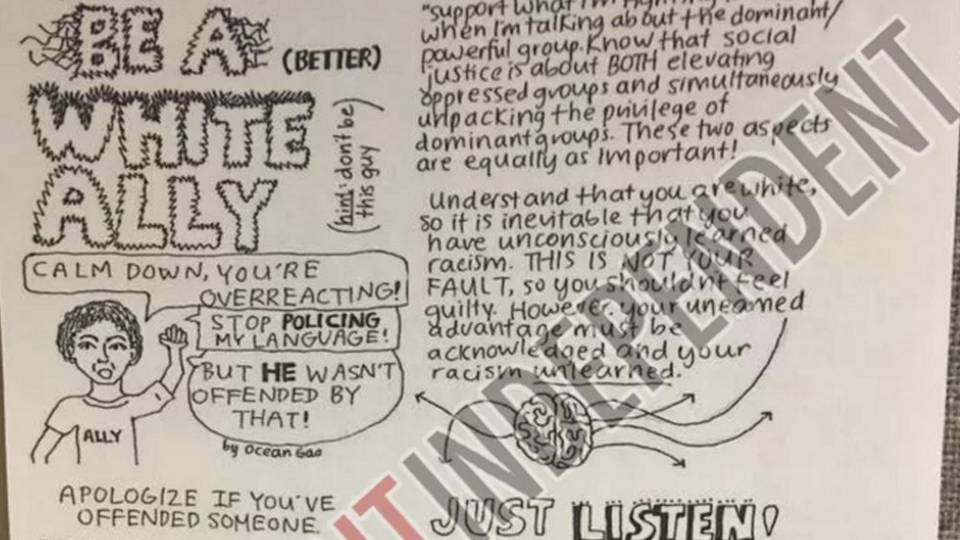 BE A
(BETTER)
WHITE
ALLY
(hint: don't be
this guy)
CALM DOWN, YOU'RE
OVERREACTING!
STOP POLICING
MY LANGUAGE!
BUT HE WASN'T
OFFENDED BY
THAT!
ALLY
by Ocean Gao
APOLOGIZE IF YOU'VE
OFFENDED SOMEONE.
"support what I'm
when I'm talking about the dominant/
powerful group. Know that social
justice is about BOTH elevating
oppressed groups and simultaneously
unpacking the privilege of
dominant groups. These two aspects
are equally as important!
Understand that you are white,
so it is inevitable that you
have unconsciously learned
racism. THIS IS NOT YOUR
FAULT, so you shouldn't feel
guilty. However, your unearned
advantage must be
acknowledged and your
racism unlearned.
JUST LISTEN!
IT INDEPENDENT